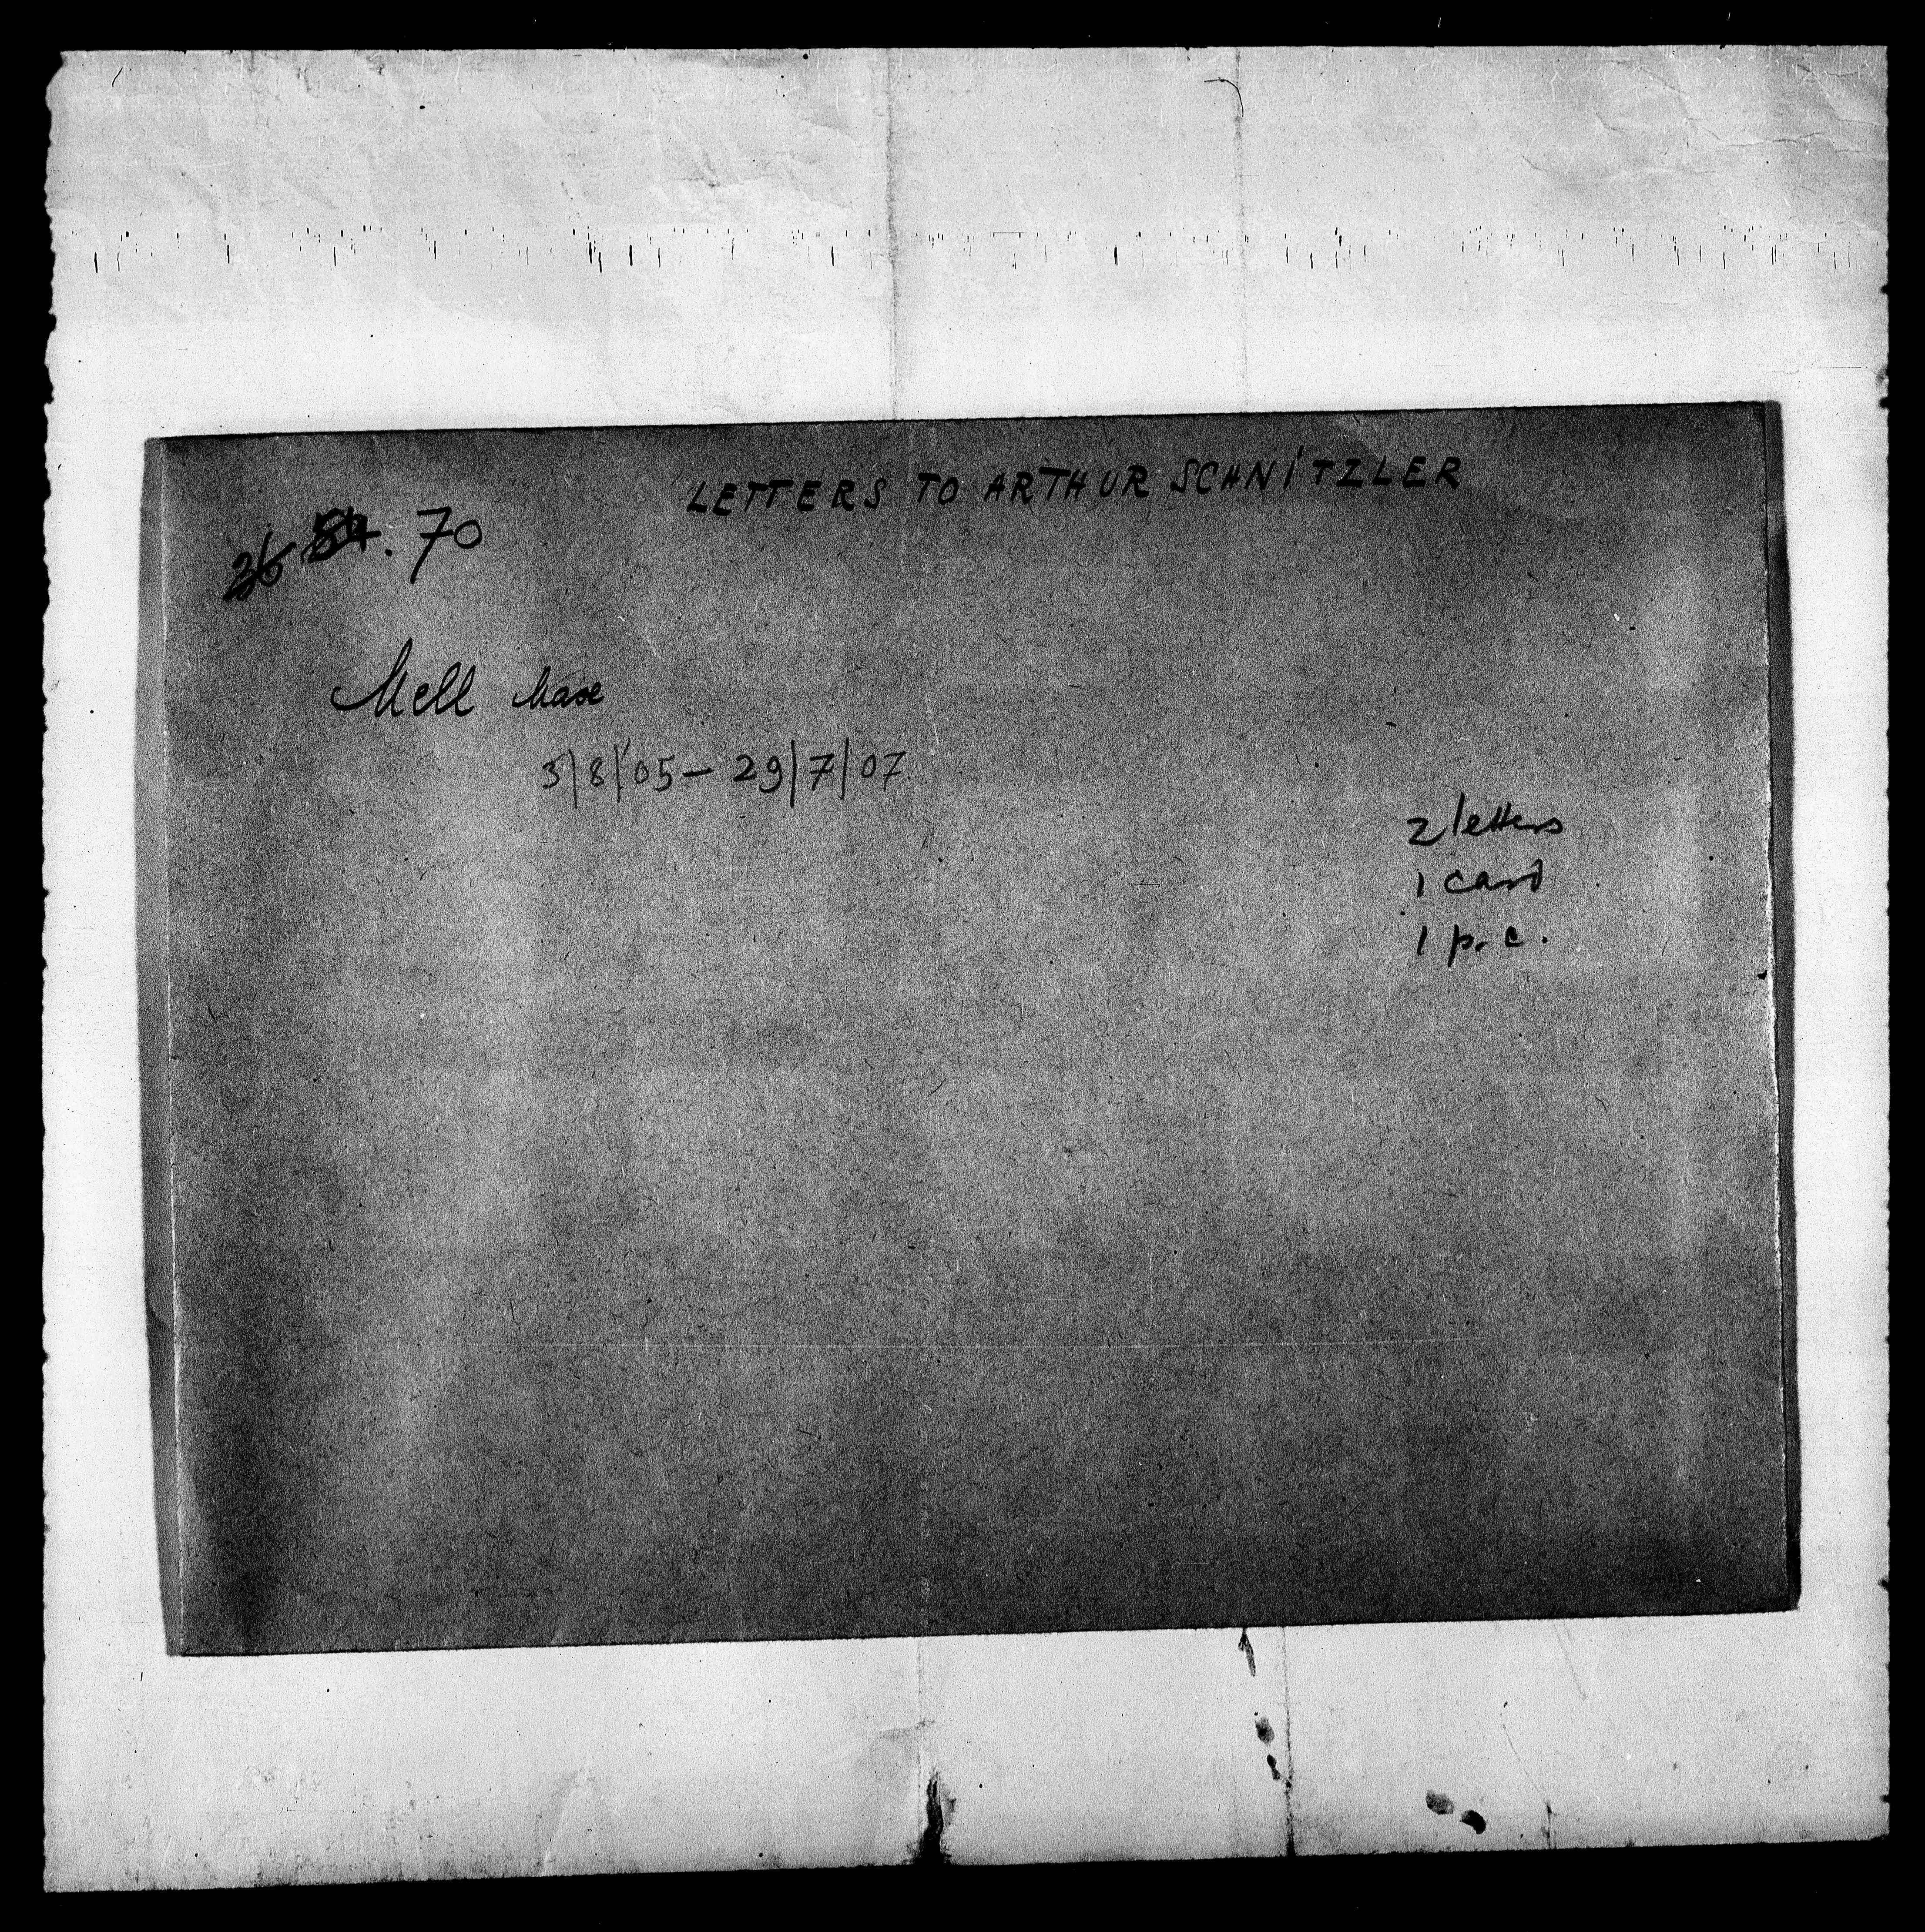 LETTERS TO ARTHUR SCHNITZLER
36 54. 70
Mell Max
3/8/05 — 29/7/07
2 letters
1 card
1 p. c.